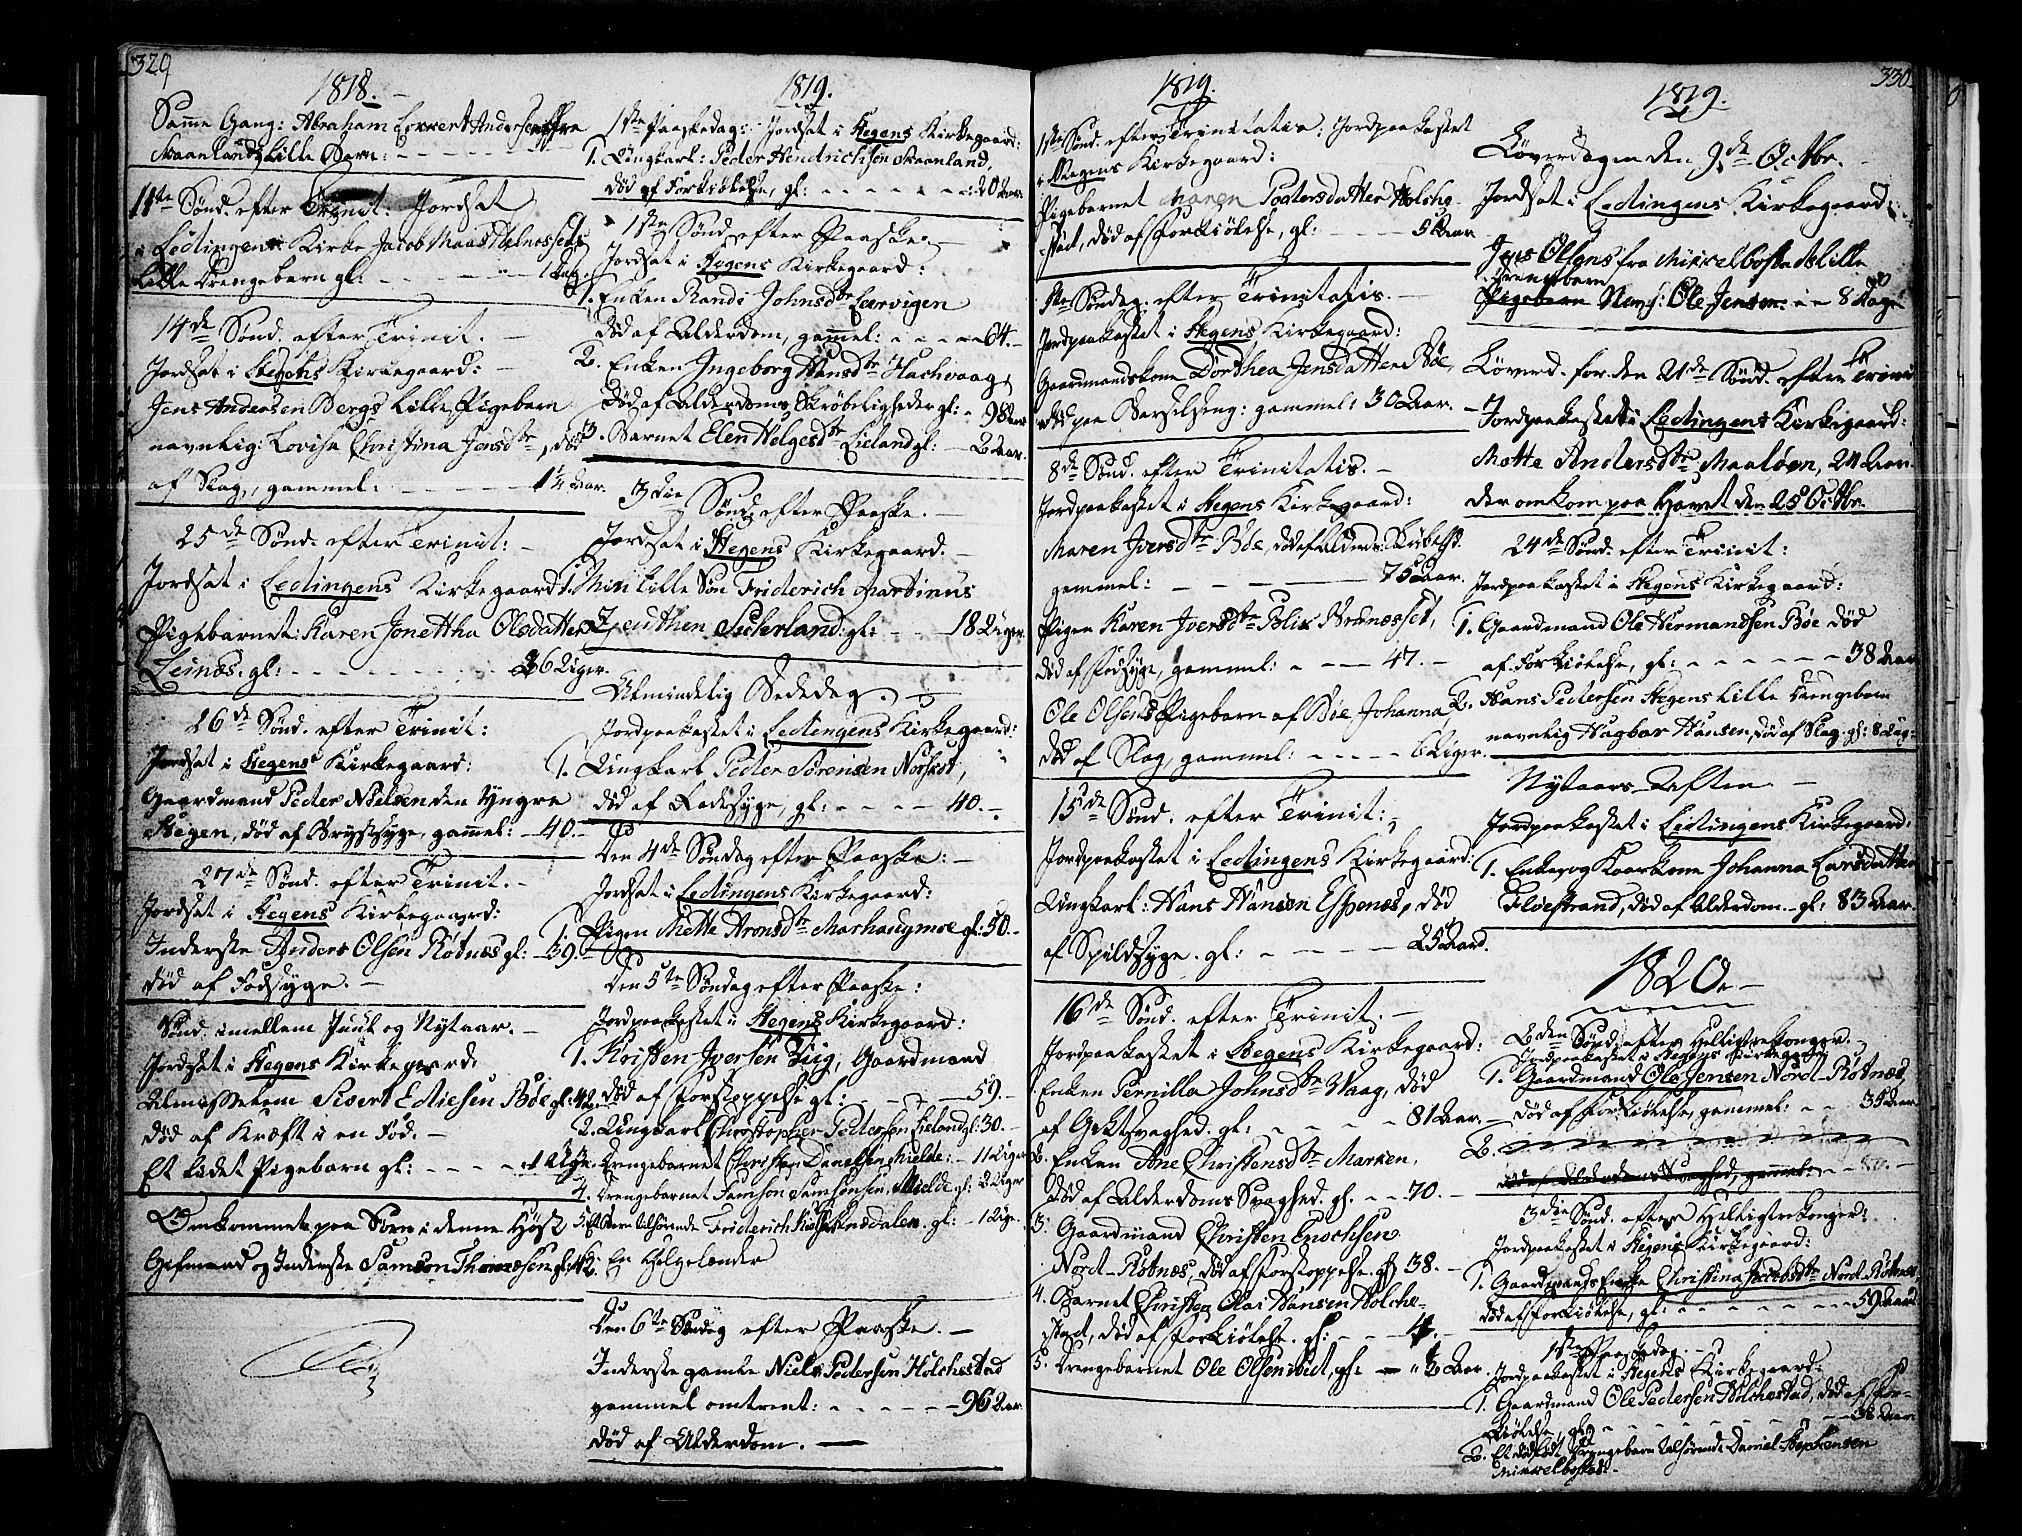 329
1818.
Samme Gang: Abraham Lorrent Andersens fra
Skaanland lille Barn:
11te Sønd. efter Trinit: Jordsat
i Lødingens Kirke Jacob Maas
lille Drengebarn gl: 1 Dag.
14de Sønd. efter Trinit.
Jordsat i Stegens Kirkegaard:
Jens Andersen Bergs lille Pigebarn
navnlig: Lovisa Christina Jensdtr, død
af Slag, gammel: 1 1/4 Aar.
25de Sønd. efter Trinit:
Jordsat i Lødingens Kirkegaard:
Pigebarnet: Karen Jonettha Olsdatter
Leinæs. gl: 26 Uger.
26de Sønd. efter Trinit:
Jordsat i Stegens Kirkegaard:
Gaardmand Peder Nielsen den yngre
Stegen, død af Brystsyge, gammel: 40.
27de Sønd. efter Trinit.
Jordsat i Stegens Kirkegaard:
Inderste Anders Olsen Røtnæs gl: 39.
død af Fodsyge.
Sønd. imellem Juul og Nytaar.
Jordsat i Stegens Kirkegaard.
Almisselem Sivert Ediesen Bøe gl: 42
død af Kræft i en Fod.
Et lidet Pigebarn gl: 1 Uge.
Omkommet paa Søen i denne Høst
Gifmand og Inderste Samson Thomæsen gl: 42.
1819.
1ste Paaskedag: Jordsat i Stegens Kirkegaard:
1. Ungkarl: Peder Hendrichsen Skaanland,
død af Forkiølelse, gl: 20 Aar.
1ste Sønd. efter Paaske
Jordsat i Stegens Kirkegaard:
1. Enken Randi Johnsdtr Lærvigen
død af Alderdom, gammel: 64.
2. Enken Ingeborg Hansdtr Hachvaag,
død af Alderdoms Skrøbeligheder gl: 98 Aar
3. Barnet Elen Helgesdtr Eieland gl: 2 Aar.
3die Sønd: efter Paaske.
Jordsat i Stegens Kirkegaard.
1. Min lille Søn Friderich Martinus
Zeuthen Sederland: gl: 18 Uger.
Almindelig Bededag.
Jordpaakastet i Lødingens Kirkegaard:
1. Ungkarl Peder Sørensen Norskot,
død af Radesyge, gl: 40.
Den 4de Søndag efter Paaske:
Jordsat i Lødingens Kirkegaard:
1. Pigen Mette Aronsdtr Marhaugmoe gl: 50.
Den 5te Søndag efter Paaske:
Jordpaakastet i Stegens Kirkegaard:
1. Kristen Iversen Ziig, Gaardmand
død af Forstoppelse gl: 59.
2. Ungkarl Christopher Pedersen Eieland gl: 30.
3. Drengebarnet Christen Danelsen Mielde: 11 Uger
4. Drengebarnet Samson Samsonsen Mielde gl: 2 Uger
5. Et Barn tilhørende Friderich Knædalen. gl: 1 Uge.
6. En Helgelænder
Den 6te Søndag efter Paaske.
Inderste gamle Niels Pedersen Holchestad
gammel omtrent: 96 Aar.
død af Alderdom.
330
1819.
1ste Sønd. efter Trinitatis: Jordpaakastet
i Stegens Kirkegaard:
Pigebarnet Maren Pedersdatter Holche-
stad, død af Forkiølelse, gl: 5 Aar.
Søndag. efter Trinitatis.
Jordpaakastet i Stegens Kirkegaard:
Gaardmandskone Dorthea Jensdatter Bøe,
død paa Barselseng: gammel: 30 Aar.
8de Sønd. efter Trinitatis.
Jordpaakastet i Stegens Kirkegaard:
Maren Iversdtr Bøe, død af
gammel: 75 Aar.
Pigen Karen Iversdtr Brunesset,
død af Fodsyge, gammel: 47.
Ole Olsens Pigebarn af Bøe, Johanna,
død af Slag, gammel: 6 Uger.
15de Sønd. efter Trinit:
Jordpaakastet i Lødingens Kirkegaard:
Ungkarl: Hans Hansen Espenes, død
af Spildsyge. gl: 25 Aar.
16de Sønd. efter Trinit.
Jordpaakastet i Stegens Kirkegaard:
1. Enken Pernilla Johnsdtr Waag, død
af Gektsvaghed. gl: 81 Aar.
2. Enken Ane Christensdtr Marken,
død af Alderdoms Svaghed. gl. 70.
3. Gaardmand Christen Enochsen
Nord-Røtnæs, død af Forstoppelse. gl 38.
4. Barnet Christen Olai Hansen Holche-
stad, død af Forkiølelse. gl: 4.
5. Drengebarnet Ole Olsen, gl: 2 Aar.
1819.
Løverdagen den 9de Octbr.
Jordsat i Lødingens Kirkegaard:
Jens Olsens fra Mikkelbostad lille
Drengebarn
Pigebarn Navnl: Ole Jensen: 8 Dage
Løverd. for den 21de Sønd. efter Trinit
Jordpaakastet i Lødingens Kirkegaard:
Mette Andersdtr Maaløen, 24 Aar.
der omkom paa Havet den 25 Octbr.
24de Sønd. efter Trinit:
Jordpaakastet i Stegens Kirkegaard:
1. Gaardmand Ole Hermandsen Bøe død
af Forkiølelse, gl: 38 Aar
2. Hans Pedersen Stegens lille Drengebarn
navnlig Hagbar Hansen, død af Slag. gl: 8 Dag:
Nytaars Aften
Jordpaakastet i Lødingens Kirkegaard:
1. Enke og Kaarkone Johanna Larsdatter
Floestrand, død af Alderdom. gl: 83 Aar.
1820.
2den Sønd. efter Helligtrekonger.
Jordpaakastet i Stegens Kirkegaard
1. Gaardmand Ole Jensen Nord-Røtnæs,
død af Forkiølelse, gammel: 35 Aar.
2.
død af Alderdoms Svaghed, gammel: 80.
3die Sønd. efter Helligtrekonger:
Jordpaakastet i Stegens Kirkegaard:
1. Gaardmands Enke Christina Jacobsdtr Nord-Røtnæs,
død af Forkiølelse, gl: 59 Aar
1ste Paaskedag.
Jordpaakastet i Stegens Kirkegaard:
1. Gaardmand Ole Pedersen Holchestad, død af For-
kiølelse, gl: 38 Aar.
2. Et dødfødt Drengebarn tilhørende Daniel Stephensen
Mikkelbostad.